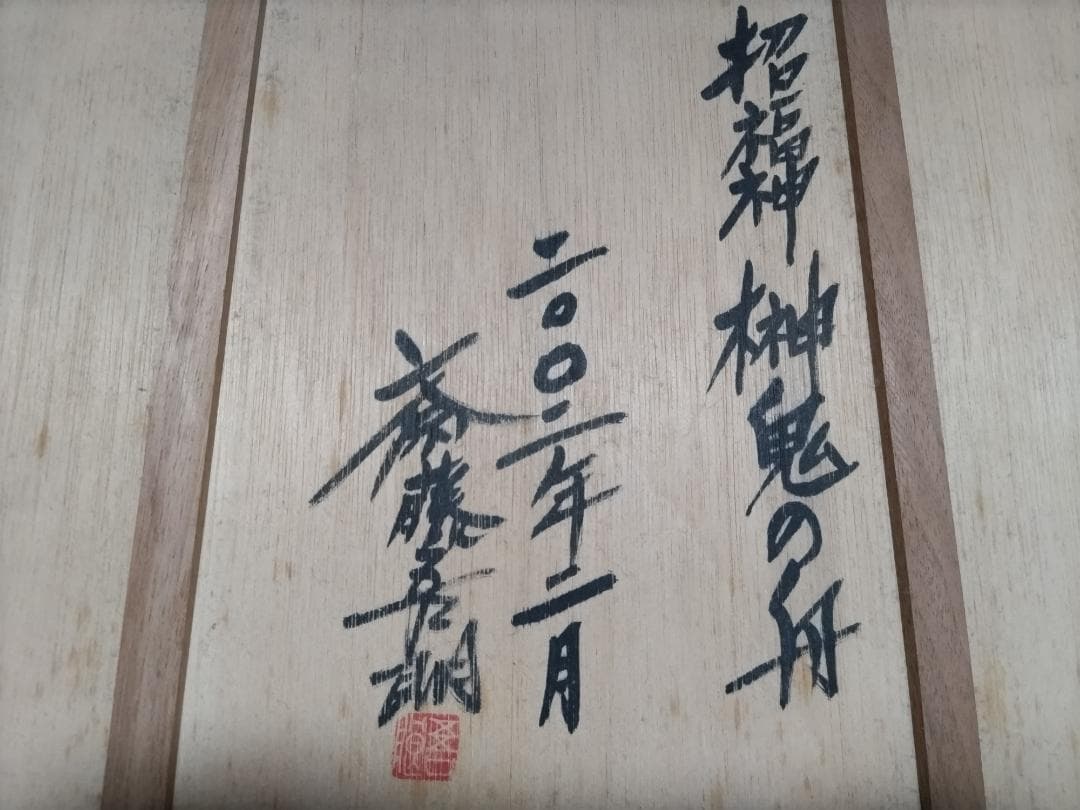 招福神 榊鬼の舟
二〇〇二年二月
斎藤吾朗